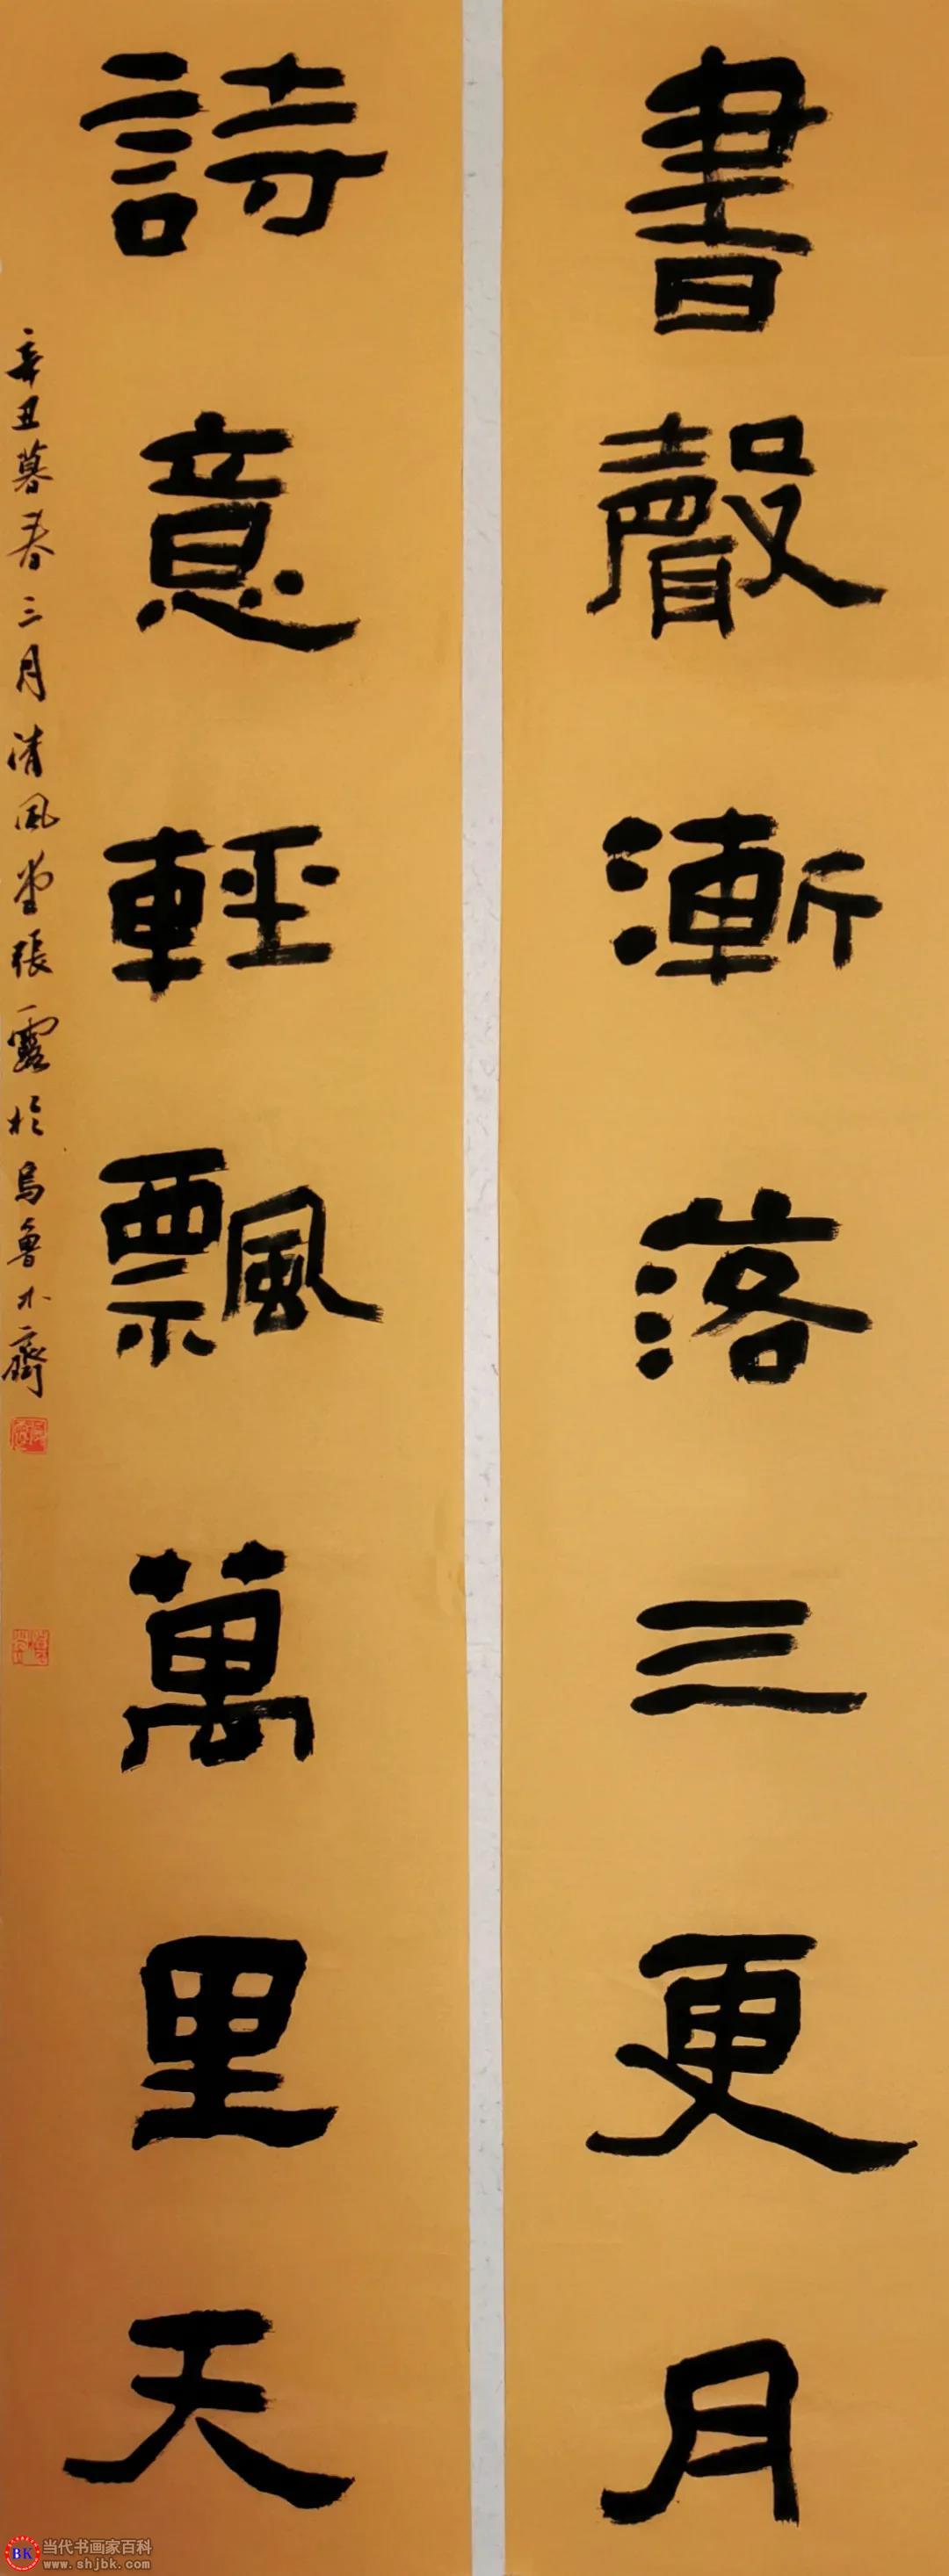 書聲漸落三更月
詩意輕飄萬里天
辛丑暮春三月清風堂張靈於烏魯木齊
BK 当代书画家百科
www.shjbk.com